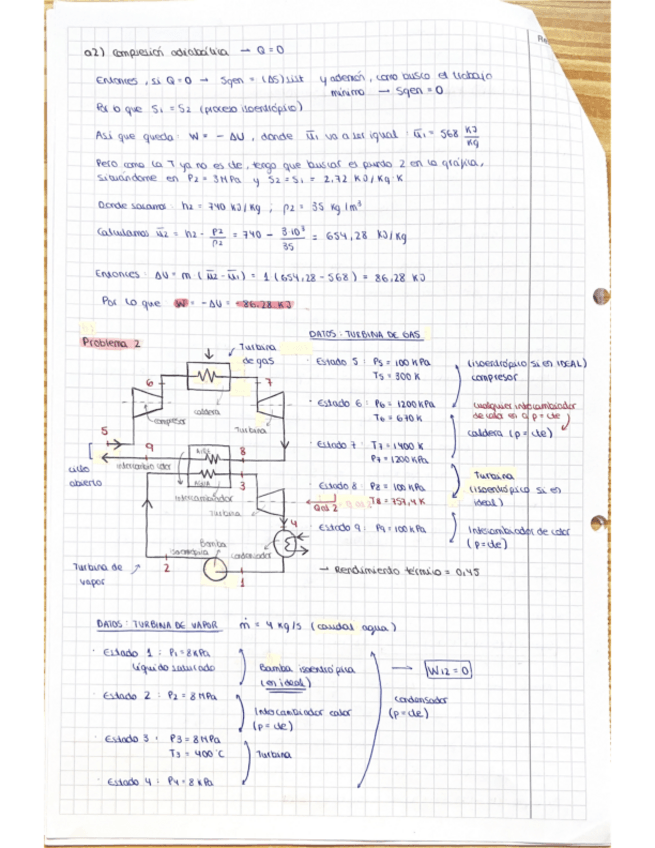 a2) Compresión adiabática → Q=0
Entonces, si Q=0 → Sgen = (ΔS)sist y además, como busco el trabajo
mínimo → Sgen = 0
Por lo que S1 = S2 (proceso isoentrópico)
Así que queda: W = - ΔU, donde u̅1 va a ser igual: u̅1 = 568 KJ/Kg
Pero como la T ya no es cte, tengo que buscar el punto 2 en la gráfica,
situándome en P2 = 3MPa y S2 = S1 = 2,72 KJ/Kg·K
Donde sacamos: h2 = 740 KJ/Kg ; ρ2 = 35 Kg/m³
Calculamos u̅2 = h2 - P2/ρ2 = 740 - 3·10³/35 = 654,28 KJ/Kg
Entonces: ΔU = m (u̅2 - u̅1) = 1 (654,28 - 568) = 86,28 KJ
Por lo que W = -ΔU = -86,28 KJ
Problema 2
Turbina
de gas
6
7
caldera
compresor
Turbina
5
9
8
intercambiador
AGUA
3
intercambiador
ciclo
abierto
Turbina
4
Bomba
isoentrópica
condensador
2
1
Turbina de
vapor
DATOS: TURBINA DE GAS
· Estado 5: P5 = 100 KPa
T5 = 300 K
(isoentrópico si es IDEAL)
compresor
· Estado 6: P6 = 1200 KPa
T6 = 670 K
cualquier intercambiador
de calor es a p = cte
caldera (p = cte)
· Estado 7: T7 = 1400 K
P7 = 1200 KPa
Turbina
(isoentrópico si es
ideal)
· Estado 8: P8 = 100 KPa
T8 = 757,4 K
· Estado 9: P9 = 100 KPa
Intercambiador de calor
(p = cte)
→ Rendimiento térmico = 0,45
DATOS: TURBINA DE VAPOR ṁ = 4 Kg/s (caudal agua)
· Estado 1: P1 = 8 KPa
líquido saturado
Bomba isoentrópica
(en ideal)
→ W12 = 0
· Estado 2: P2 = 8 MPa
Intercambiador calor
(p = cte)
condensador
(p = cte)
· Estado 3: P3 = 8 MPa
T3 = 400 °C
Turbina
· Estado 4: P4 = 8 KPa